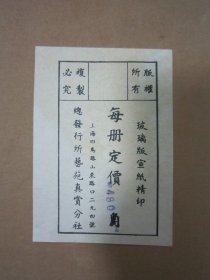 版權
所有
複製
必究
玻璃版宣紙精印
每册定價
480
上海四馬路山東路口二九四號
總發行所藝苑真賞分社